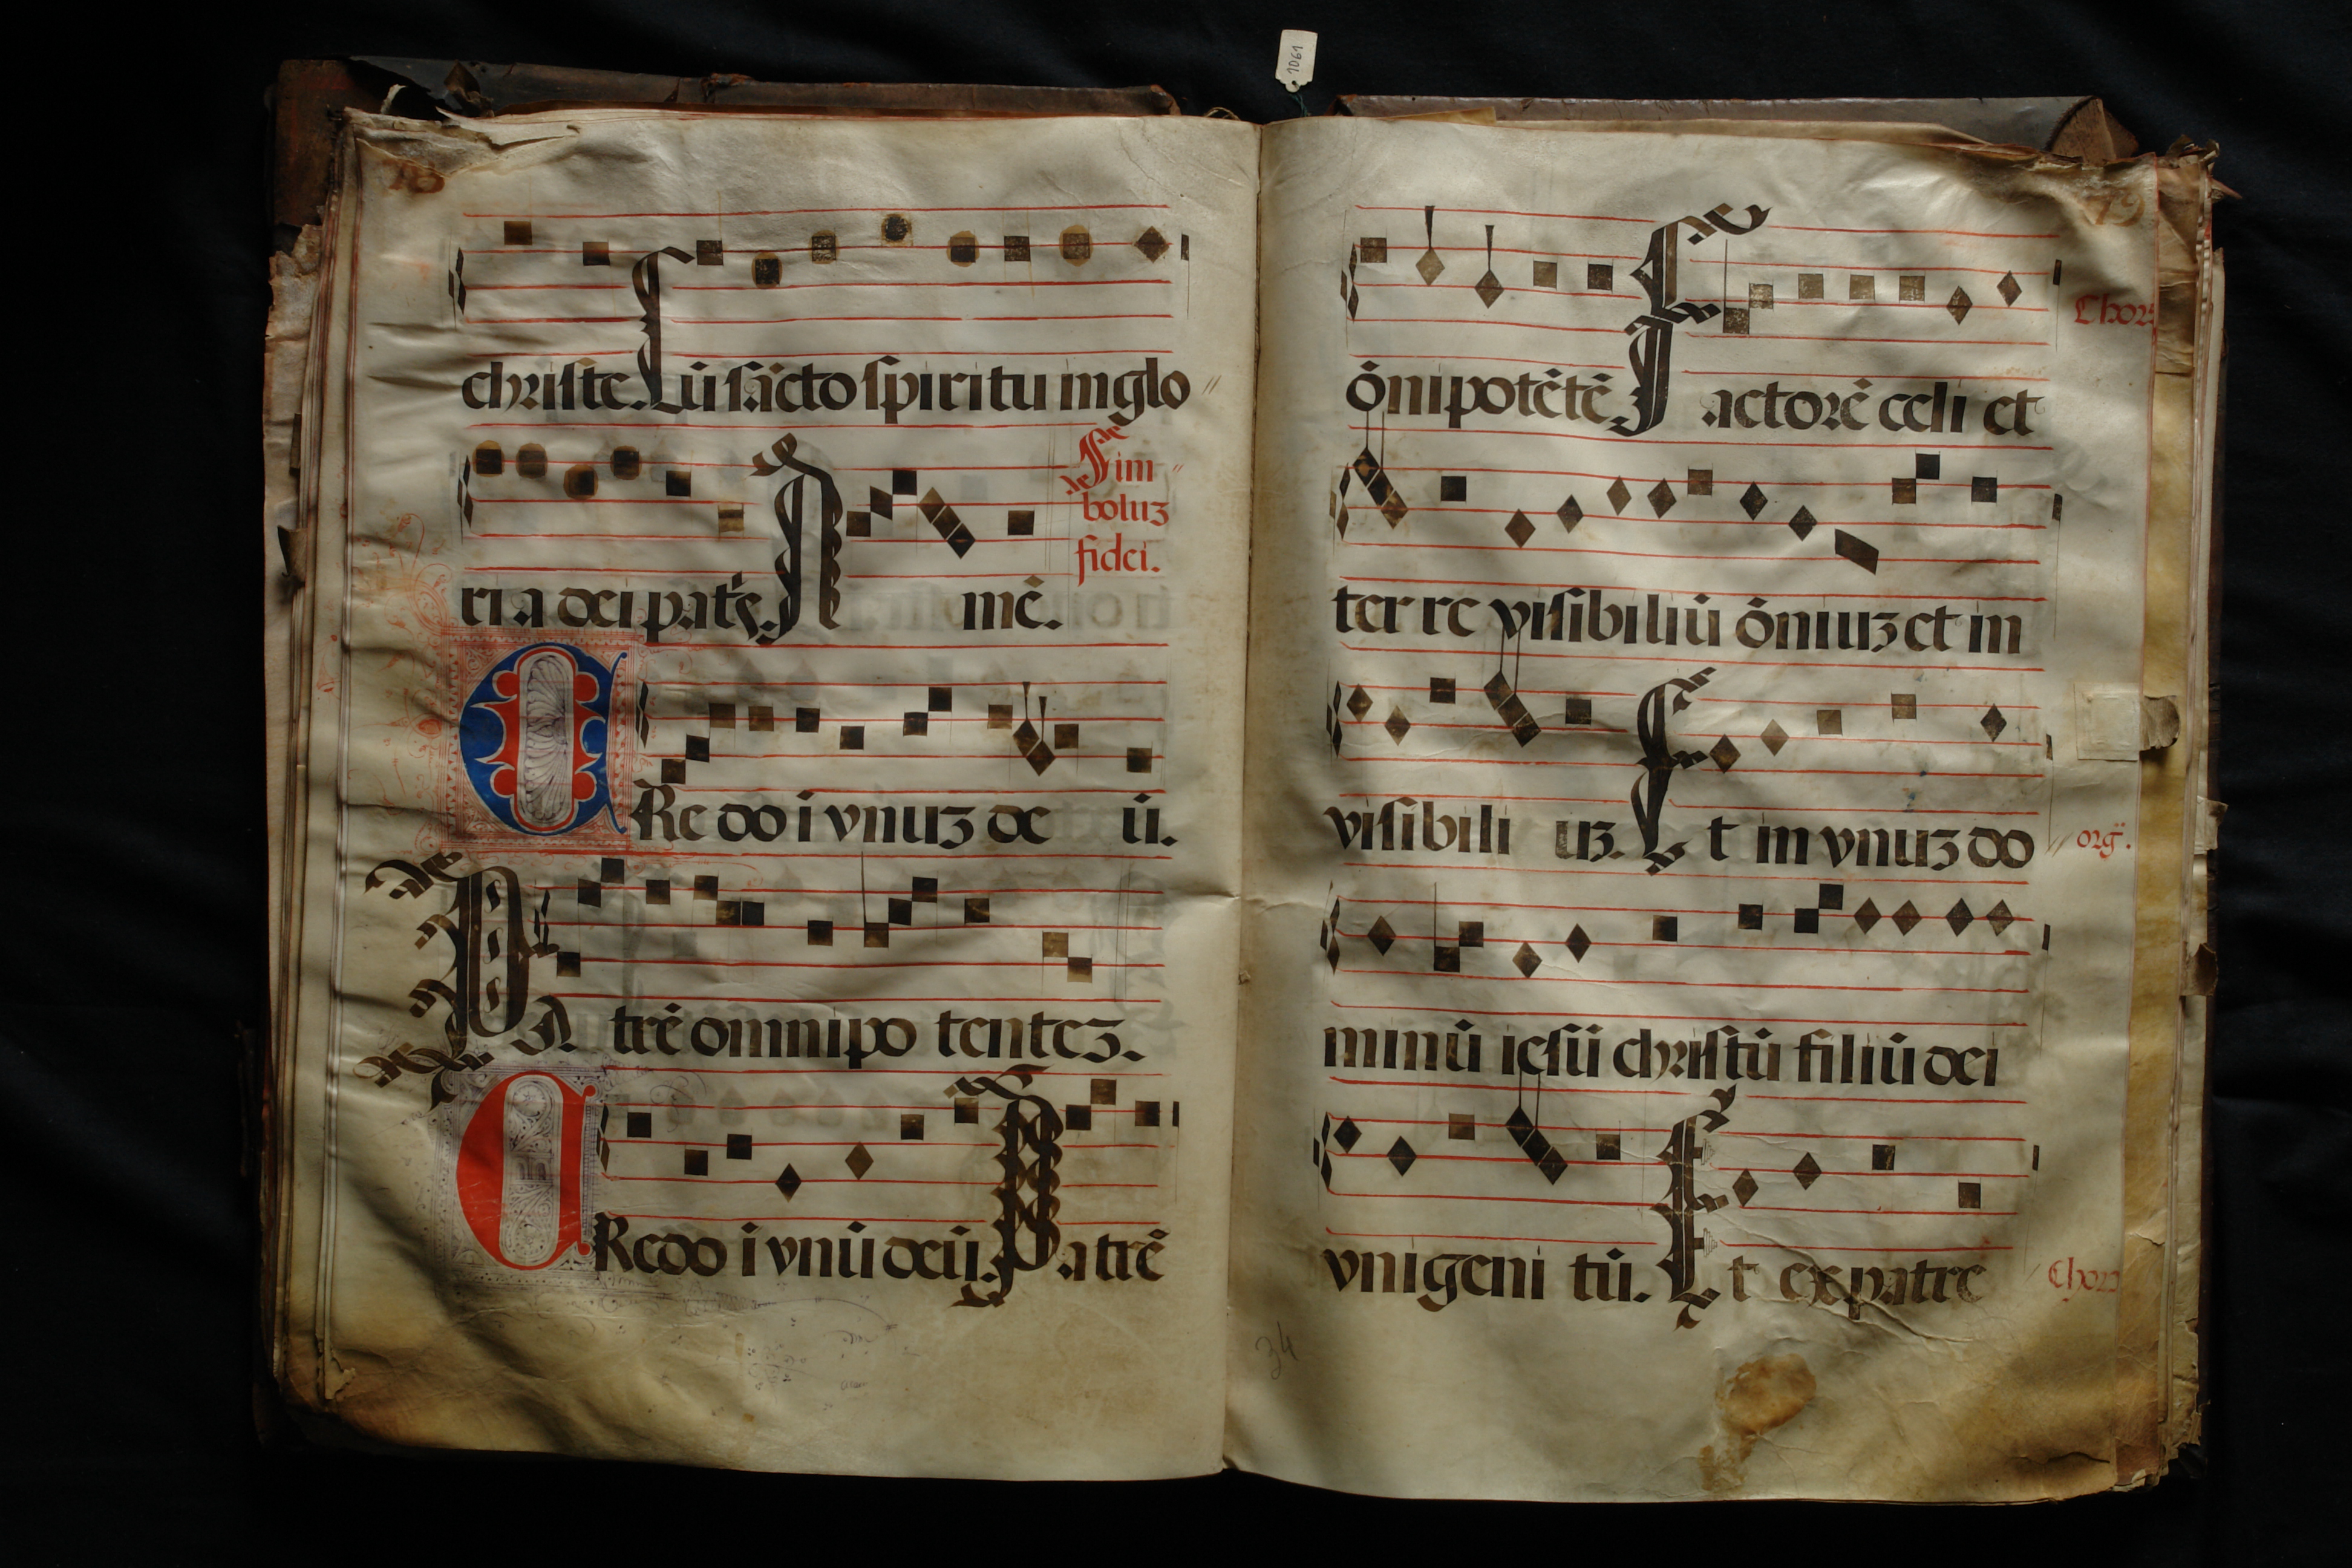 1061
18
christe. Cū sācto spiritu in glo
ri a dei patꝭ. A mē.
Sim
boluꝫ
fidei.
CRe do ī vnuꝫ de ū.
PA trē omnipo tenteꝫ.
CRedo ī vnū deū. Patrē
19
ōnipotētē Factorē celi et
ter re visibiliū ōniuꝫ et in
visibili uꝫ. Et in vnuꝫ do
org̃.
minū iesū christū filiū dei
vnigeni tū. Et ex patre
34